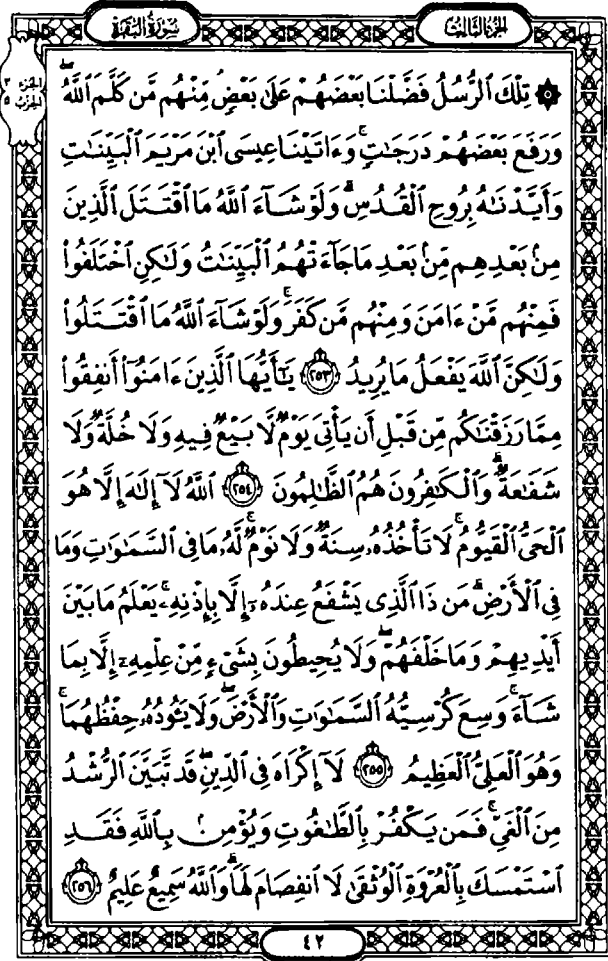 الجزء الثالث
سورة البقرة
الجزء ٣
الحزب ٥
۞ تِلْكَ ٱلرُّسُلُ فَضَّلْنَا بَعْضَهُمْ عَلَىٰ بَعْضٍ مِّنْهُم مَّن كَلَّمَ ٱللَّهُ ۖ
وَرَفَعَ بَعْضَهُمْ دَرَجَٰتٍ ۚ وَءَاتَيْنَا عِيسَى ٱبْنَ مَرْيَمَ ٱلْبَيِّنَٰتِ
وَأَيَّدْنَٰهُ بِرُوحِ ٱلْقُدُسِ ۗ وَلَوْ شَآءَ ٱللَّهُ مَا ٱقْتَتَلَ ٱلَّذِينَ
مِنۢ بَعْدِهِم مِّنۢ بَعْدِ مَا جَآءَتْهُمُ ٱلْبَيِّنَٰتُ وَلَٰكِنِ ٱخْتَلَفُوا۟
فَمِنْهُم مَّنْ ءَامَنَ وَمِنْهُم مَّن كَفَرَ ۚ وَلَوْ شَآءَ ٱللَّهُ مَا ٱقْتَتَلُوا۟
وَلَٰكِنَّ ٱللَّهَ يَفْعَلُ مَا يُرِيدُ ٢٥٣ يَٰٓأَيُّهَا ٱلَّذِينَ ءَامَنُوٓا۟ أَنفِقُوا۟
مِمَّا رَزَقْنَٰكُم مِّن قَبْلِ أَن يَأْتِىَ يَوْمٌ لَّا بَيْعٌ فِيهِ وَلَا خُلَّةٌ وَلَا
شَفَٰعَةٌ ۗ وَٱلْكَٰفِرُونَ هُمُ ٱلظَّٰلِمُونَ ٢٥٤ ٱللَّهُ لَآ إِلَٰهَ إِلَّا هُوَ
ٱلْحَىُّ ٱلْقَيُّومُ ۚ لَا تَأْخُذُهُۥ سِنَةٌ وَلَا نَوْمٌ ۚ لَّهُۥ مَا فِى ٱلسَّمَٰوَٰتِ وَمَا
فِى ٱلْأَرْضِ ۗ مَن ذَا ٱلَّذِى يَشْفَعُ عِندَهُۥٓ إِلَّا بِإِذْنِهِۦ ۚ يَعْلَمُ مَا بَيْنَ
أَيْدِيهِمْ وَمَا خَلْفَهُمْ ۖ وَلَا يُحِيطُونَ بِشَىْءٍ مِّنْ عِلْمِهِۦٓ إِلَّا بِمَا
شَآءَ ۚ وَسِعَ كُرْسِيُّهُ ٱلسَّمَٰوَٰتِ وَٱلْأَرْضَ ۖ وَلَا يَـُٔودُهُۥ حِفْظُهُمَا ۚ
وَهُوَ ٱلْعَلِىُّ ٱلْعَظِيمُ ٢٥٥ لَآ إِكْرَاهَ فِى ٱلدِّينِ ۖ قَد تَّبَيَّنَ ٱلرُّشْدُ
مِنَ ٱلْغَىِّ ۚ فَمَن يَكْفُرْ بِٱلطَّٰغُوتِ وَيُؤْمِنۢ بِٱللَّهِ فَقَدِ
ٱسْتَمْسَكَ بِٱلْعُرْوَةِ ٱلْوُثْقَىٰ لَا ٱنفِصَامَ لَهَا ۗ وَٱللَّهُ سَمِيعٌ عَلِيمٌ ٢٥٦
٤٢